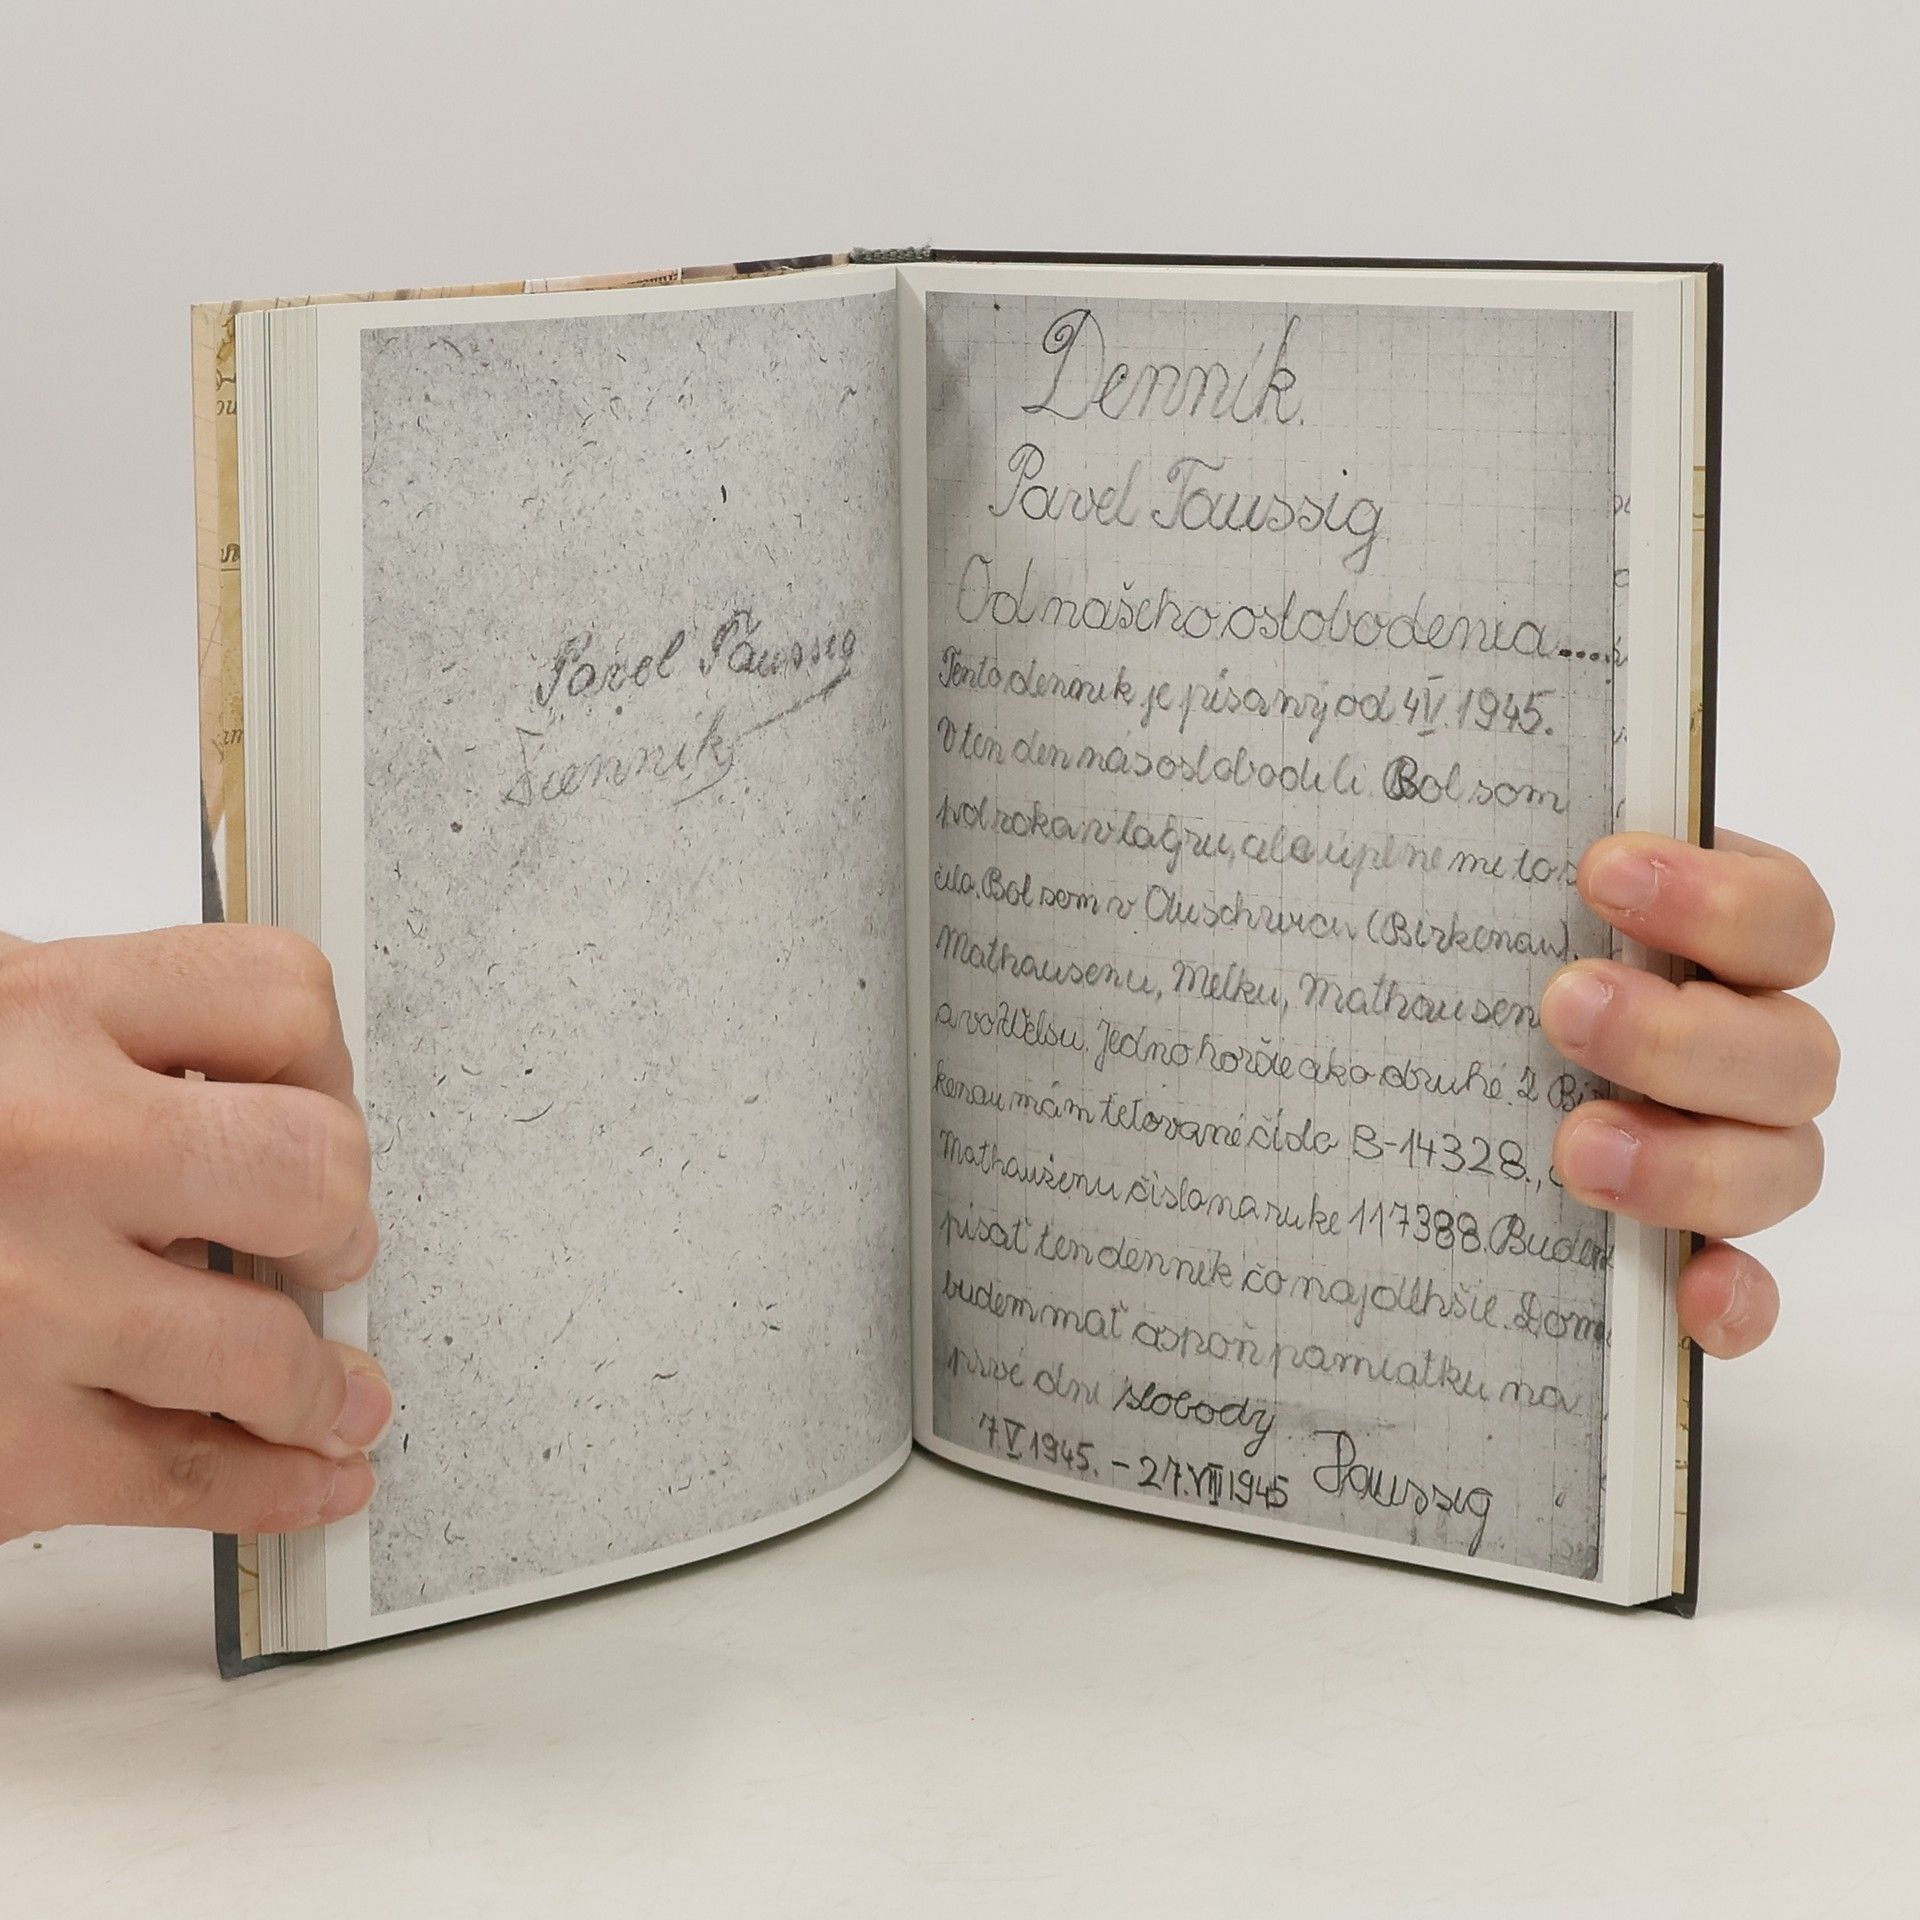 Pavel Taussig
Dennik
Dennik.
Pavel Taussig
Od našeho oslobodenia....
Tento dennik je písaný od 4V. 1945.
V ten den nás oslobodili. Bol som
pol roka v lagru, ale úplne mi to s
čilo. Bol som v Auschwicu (Birkenau).
Mathausenu, Melku, Mathausen
a vo Welsu. Jedno horšie ako druhé. Z Bir
kenau mám tetované číslo B-14328.,
Mathausenu číslo na ruke 117388. Budem
písať ten dennik čo najdlhšie. Doma
budem mať aspoň pamiatku na
prvé dni slobody.
7V 1945. - 27.VII 1945 Taussig